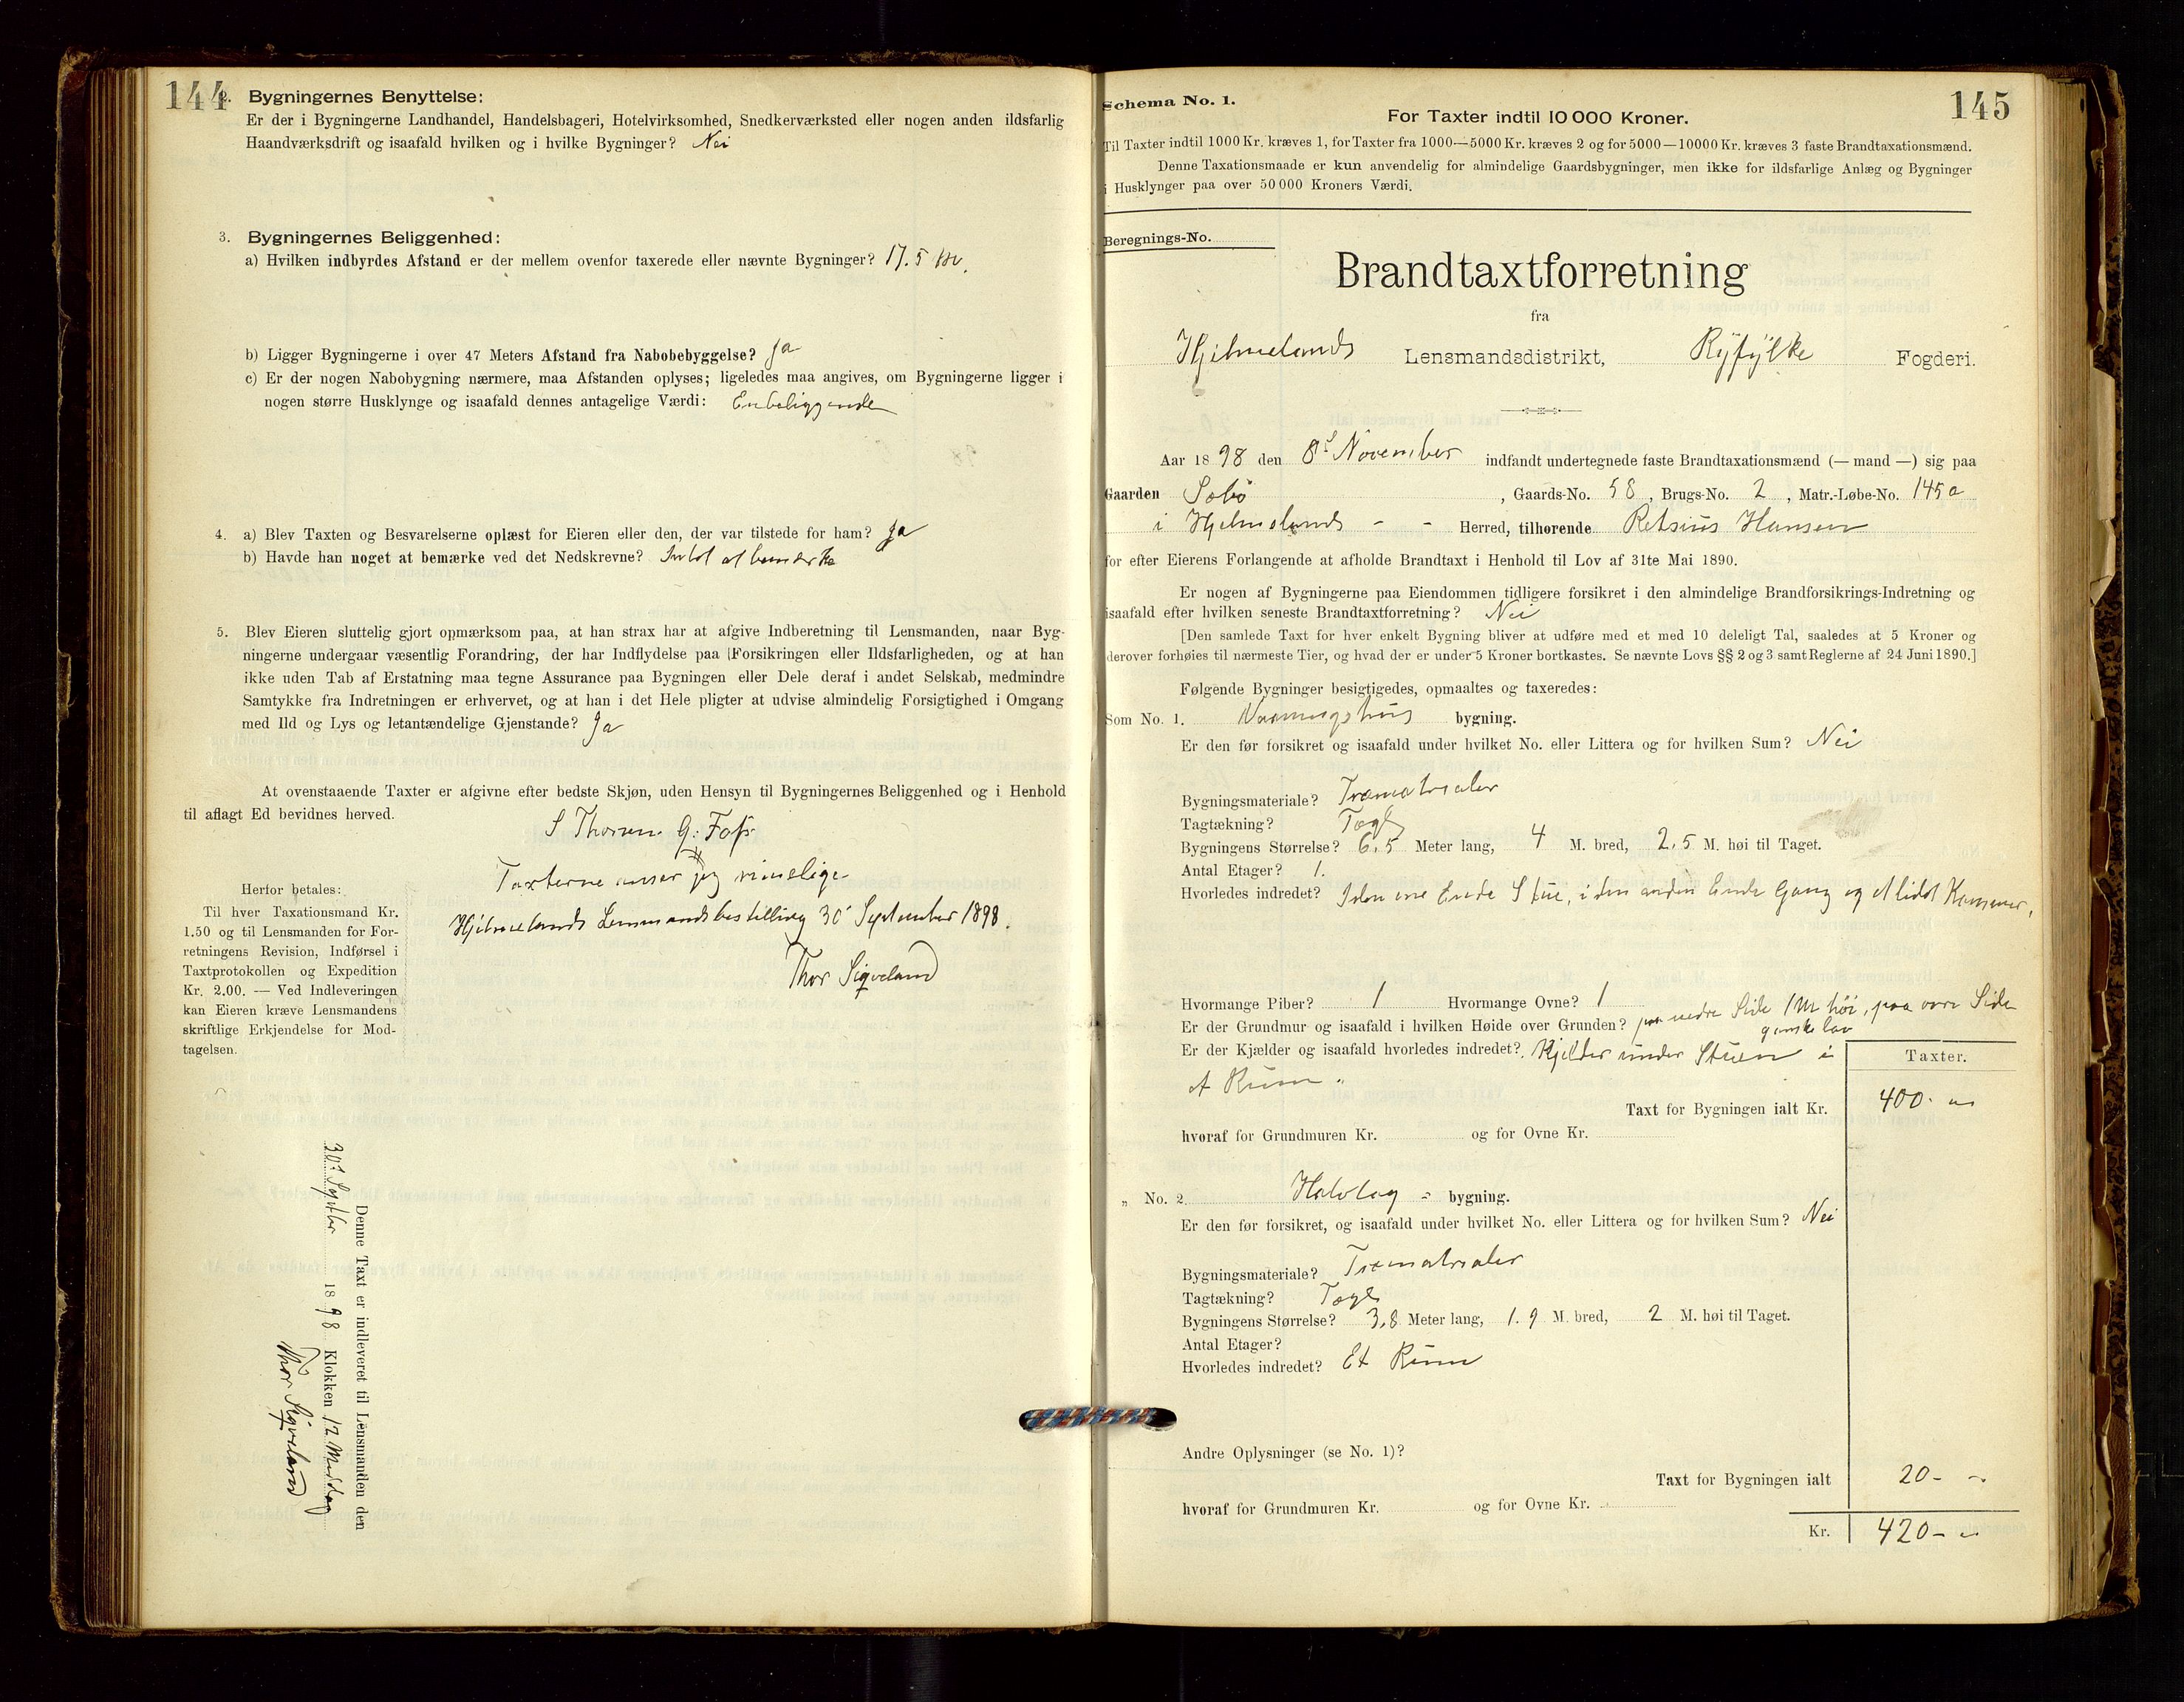 144
2. Bygningernes Benyttelse:
Er der i Bygningerne Landhandel, Handelsbageri, Hotelvirksomhed, Snedkerværksted eller nogen anden ildsfarlig
Haandværksdrift og isaafald hvilken og i hvilke Bygninger? Nei
3. Bygningernes Beliggenhed:
a) Hvilken indbyrdes Afstand er der mellem ovenfor taxerede eller nævnte Bygninger? 17.5 M.
b) Ligger Bygningerne i over 47 Meters Afstand fra Nabobebyggelse? Ja
c) Er der nogen Nabobygning nærmere, maa Afstanden oplyses; ligeledes maa angives, om Bygningerne ligger i
nogen større Husklynge og isaafald dennes antagelige Værdi: Enbeliggende
4. a) Blev Taxten og Besvarelserne oplæst for Eieren eller den, der var tilstede for ham? Ja
b) Havde han noget at bemærke ved det Nedskrevne? Intet at bemærke
5. Blev Eieren sluttelig gjort opmærksom paa, at han strax har at afgive Indberetning til Lensmanden, naar Byg-
ningerne undergaar væsentlig Forandring, der har Indflydelse paa Forsikringen eller Ildsfarligheden, og at han
ikke uden Tab af Erstatning maa tegne Assurance paa Bygningen eller Dele deraf i andet Selskab, medmindre
Samtykke fra Indretningen er erhvervet, og at han i det Hele pligter at udvise almindelig Forsigtighed i Omgang
med Ild og Lys og letantændelige Gjenstande? Ja
At ovenstaaende Taxter er afgivne efter bedste Skjøn, uden Hensyn til Bygningernes Beliggenhed og i Henhold
til aflagt Ed bevidnes herved.
S Thorsen G. Foss
Taxterne anser jeg rimelige
Hjelmelands Lensmandsbestilling 30' September 1898.
Thor Sigveland
Herfor betales:
Til hver Taxationsmand Kr.
1.50 og til Lensmanden for For-
retningens Revision, Indførsel i
Taxtprotokollen og Expedition
Kr. 2.00. — Ved Indleveringen
kan Eieren kræve Lensmandens
skriftlige Erkjendelse for Mod-
tagelsen.
Denne Taxt er indleveret til Lensmanden den
30' Septbr 1898 Klokken 12 Middag
Thor Sigveland
145
Schema No. 1.
For Taxter indtil 10 000 Kroner.
Til Taxter indtil 1000 Kr. kræves 1, for Taxter fra 1000—5000 Kr. kræves 2 og for 5000—10000 Kr. kræves 3 faste Brandtaxationsmænd.
Denne Taxationsmaade er kun anvendelig for almindelige Gaardsbygninger, men ikke for ildsfarlige Anlæg og Bygninger
i Husklynger paa over 50 000 Kroners Værdi.
Beregnings-No.
Brandtaxtforretning
fra
Hjelmelands Lensmandsdistrikt, Ryfylke Fogderi.
Aar 1898 den 8' November indfandt undertegnede faste Brandtaxationsmænd (— mand —) sig paa
Gaarden Sæbø, Gaards-No. 58, Brugs-No. 2, Matr.-Løbe-No. 145a
i Hjelmelands - - Herred, tilhørende Retsius Hansen
for efter Eierens Forlangende at afholde Brandtaxt i Henhold til Lov af 31te Mai 1890.
Er nogen af Bygningerne paa Eiendommen tidligere forsikret i den almindelige Brandforsikrings-Indretning og
isaafald efter hvilken seneste Brandtaxtforretning? Nei
[Den samlede Taxt for hver enkelt Bygning bliver at udføre med et med 10 deleligt Tal, saaledes at 5 Kroner og
derover forhøies til nærmeste Tier, og hvad der er under 5 Kroner bortkastes. Se nævnte Lovs §§ 2 og 3 samt Reglerne af 24 Juni 1890.]
Følgende Bygninger besigtigedes, opmaaltes og taxeredes:
Som No. 1. Vaaningshus bygning.
Er den før forsikret og isaafald under hvilket No. eller Littera og for hvilken Sum? Nei
Bygningsmateriale? Træmatrialer
Tagtækning? Tagl
Bygningens Størrelse? 6,5 Meter lang, 4 M. bred, 2,5 M. høi til Taget.
Antal Etager? 1.
Hvorledes indredet? I den ene Ende Stue, i den anden Ende Gang og et lidet Kammer.
Hvormange Piber? 1 Hvormange Ovne? 1
Er der Grundmur og isaafald i hvilken Høide over Grunden? paa nedre Side 1 M høi, paa øvre Side
ganske lav
Er der Kjælder og isaafald hvorledes indredet? Kjelder under Stuen i
et Rum.
Taxter.
Taxt for Bygningen ialt Kr. 400.
hvoraf for Grundmuren Kr. og for Ovne Kr.
„ No. 2. bygning.
Er den før forsikret, og isaafald under hvilket No. eller Littera og for hvilken Sum? Nei
Bygningsmateriale? Træmatrialer
Tagtækning? Tagl
Bygningens Størrelse? 3,8 Meter lang, 1.9 M. bred, 2 M. høi til Taget.
Antal Etager?
Hvorledes indredet? Et Rum
Andre Oplysninger (se No. 1)?
Taxt for Bygningen ialt 20 -
hvoraf for Grundmuren Kr. og for Ovne Kr.
Kr. 420 -